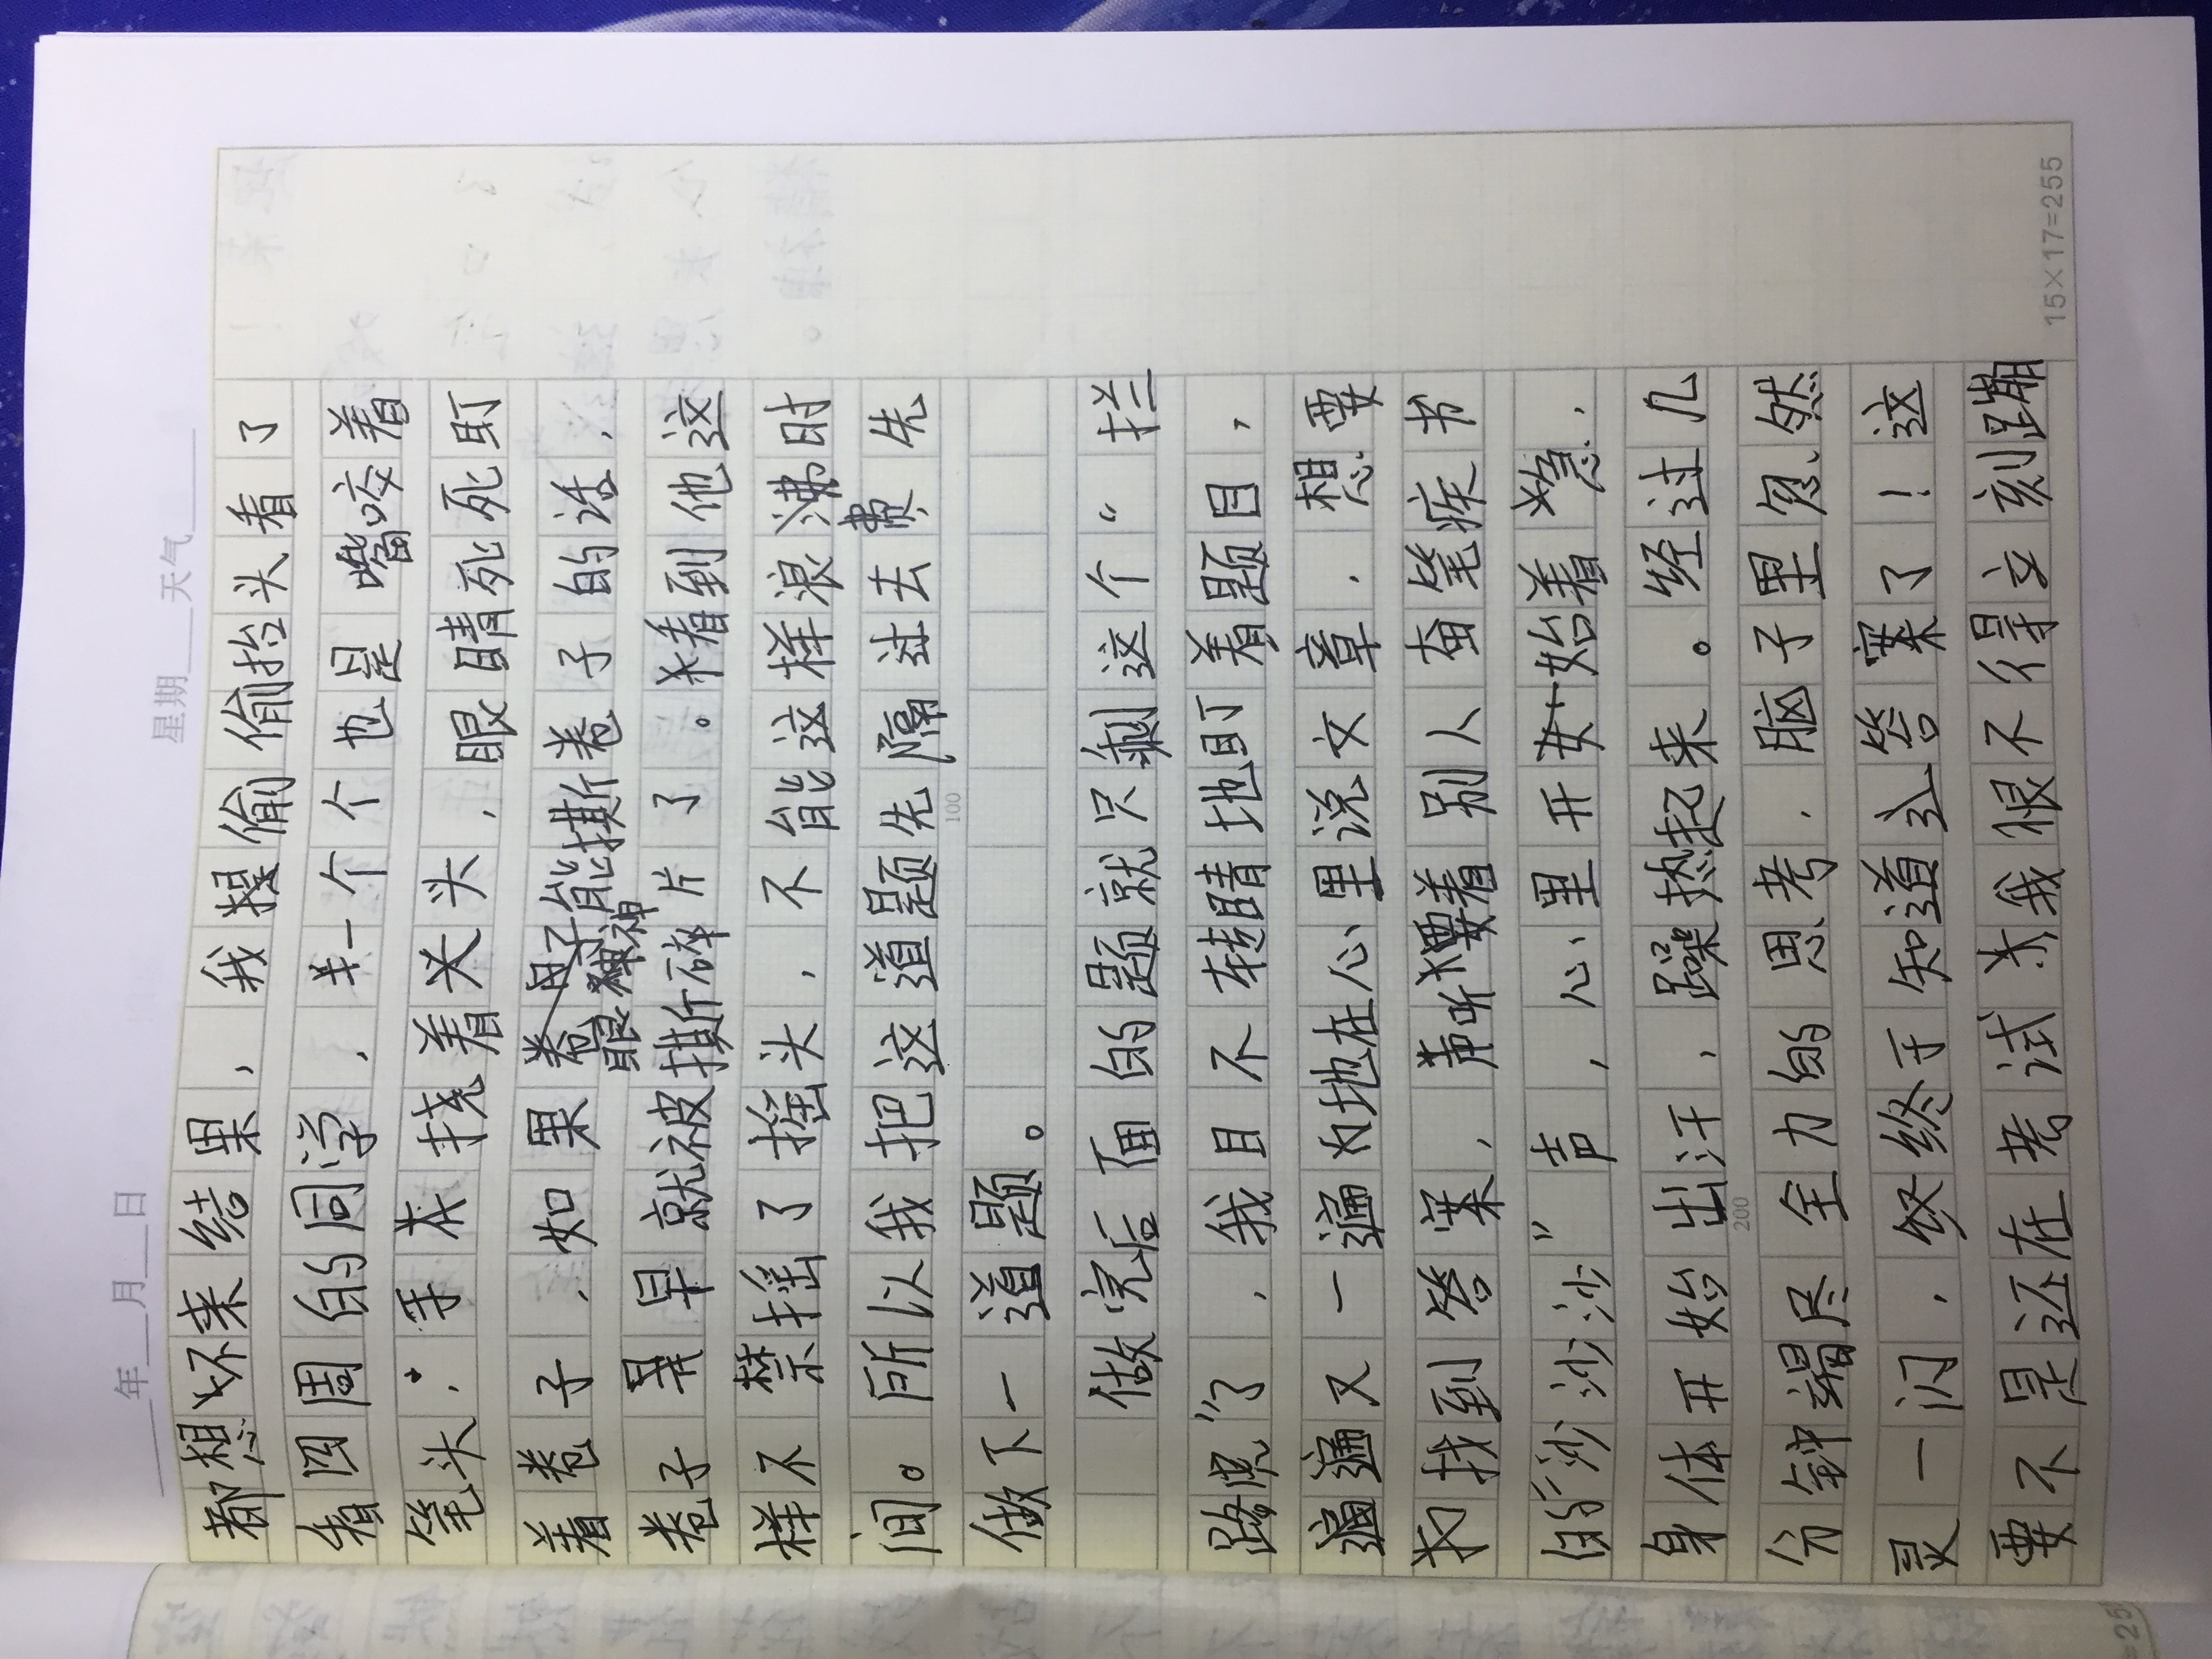 年 月 日 星期 天气
都想坏来结果，我提偷偷抬头看了
看四周的同学，一个个也是嘴咬着
笔头，手挠着头，眼睛死死盯
着卷子，如果眼神能撕卷子的话，
卷子早就被撕碎片了。看到他这
样不禁摇了摇头，不能这样浪费时
间。所以我把这道题先隔过去先
100
做下一道题。
做完后面的题就只剩这个“拦
路虎”了，我目不转睛地盯着题目，
遍遍又一遍地在心里说文章，想要
找到答案，听着别人奋笔疾书
的“沙沙沙”声，心里开始着急，
身体开始出汗，躁热起来。经过几
200
分钟竭尽全力的思考，脑子里忽然
灵一闪，终于知道答案了！这
要不是还在考试我恨不得立刻蹦
15×17=255